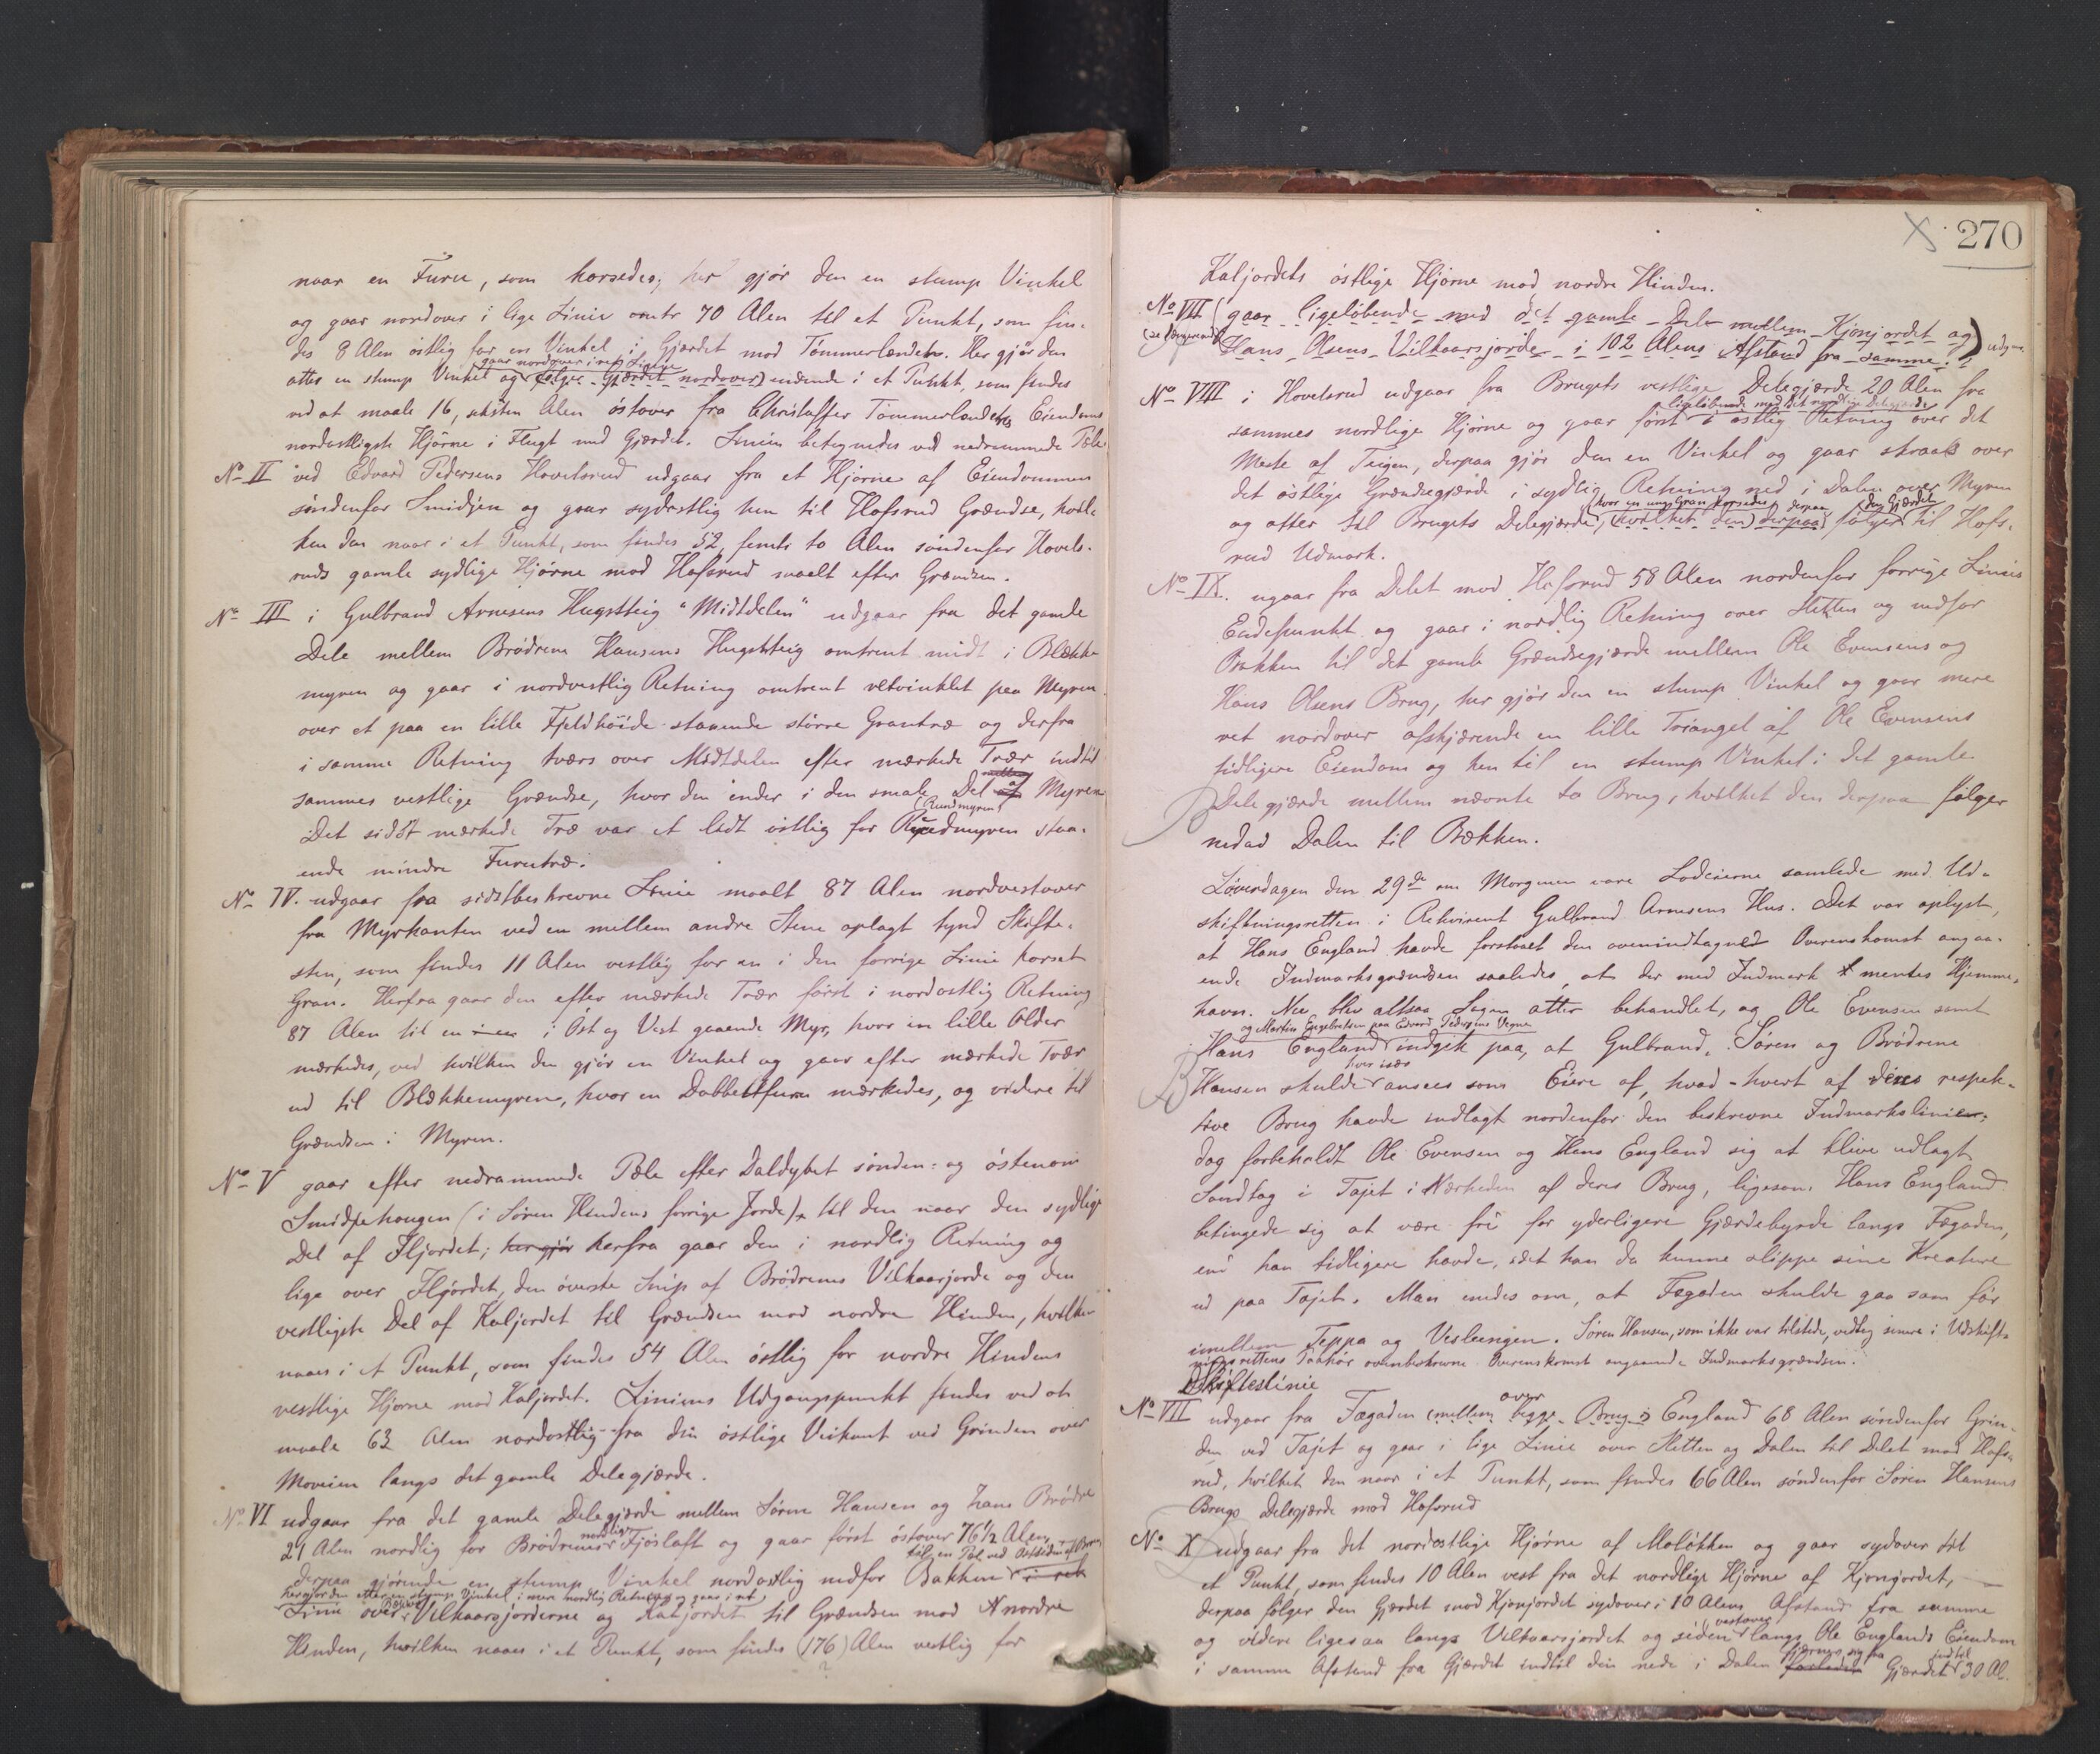 naar en Furu, som korsedes; her gjør den en stump Vinkel
og gaar nordover i lige Linie omtr 70 Alen til et Punkt, som fin-
des 8 Alen østlig for en Vinkel i Gjærdet mod Tømmerlandets. Her gjør den
gaar nordover i ret Linie
atter en stump Vinkel og (følger Gjærdet nordover) endende i et Punkt, som findes
ved at maale 16, seksten Alen østover fra Christoffer Tømmerlandets Eiendoms
nordostligste Hjørne i Flugt med Gjærdet. Linien betegnedes ved nedrammede Pæle
No II ved Edvard Pedersens Hovelsrud udgaar fra et Hjørne af Eiendommen
søndenfor Smidjen og gaar sydvestlig hen til Hofsrud Grændse, hvil-
ken den naar i et Punkt, som findes 52, femti to Alen søndenfor Hovels-
ruds gamle sydlige Hjørne mod Hofsrud maalt efter Grændsen.
No III i Gulbrand Arnesens Hugstteig "Midtdelen" udgaar fra det gamle
Dele mellem Brødrene Hansens Hugstteig omtrent midt i Blække-
myren og gaar i nordvestlig Retning omtrent retvinklet paa Myren
over et paa en lille Fjeldhøide staaende større Grantræ og derfra
i samme Retning tværs over Midtdelen efter mærkede Trær indtil
sammes vestlige Grændse, hvor den ender i den smale Del af Myren
(Rundmyren)
Det sidst mærkede Træ var et lidt østlig for Rundmyren staa-
ende mindre Furutræ.
No IV. udgaar fra sidstbeskrevne Linie maalt 87 Alen nordvestover
fra Myrkanten ved en mellem andre Stene oplagt tynd Skifte-
sten, som findes 11 Alen vestlig for en i den forrige Linie korset
Gran. Herfra gaar den efter mærkede Trær først i nordostlig Retning
87 Alen til en i en i Øst og Vest gaaende Myr, hvor en lille Older
mærkedes, ved hvilken den gjør en Vinkel og gaar efter mærkede Trær
ud til Blækkemyren, hvor en Dobbeltfuru mærkedes, og videre til
Grændsen i Myren.
No V gaar efter nedrammede Pæle efter Daldybet sønden- og østenom
Smidjehaugen (i Søren Hindens forrige Jorde) til den naar den sydlige
Del af Fljordet; her gjør herfra gaar den i nordlig Retning og
lige over Fljordet, den øverste Snip af Brødrenes Vilkaarsjorde og den
vestligste Del af Kaljordet til Grændsen mod nordre Hinden, hvilken
naaes i et Punkt, som findes 54 Alen østlig for nordre Hindens
vestlige Hjørne mod Kaljordet. Liniens Udgangspunkt findes ved at
maale 63 Alen nordostlig fra den østlige Veikant ved Grinden over
Moveien langs det gamle Delegjærde.
No VI udgaar fra det gamle Delegjærde mellem Søren Hansen og hans Brødre
nordlige
21 Alen nordlig for Brødrenes Fjøsloft og gaar først østover 76 1/2 Alen
til en Pæl ved Østsiden af
derpaa gjørende en stump Vinkel nordostlig nedfor Bakken i ret
her gjør den atter en stump Vinkel i mere nordlig Retning og gaar i ret
Linie over Vilkaarsjorderne og Kaljordet til Grændsen mod nordre
Hinden, hvilken naaes i et Punkt, som findes (176) Alen vestlig for
?
270
Kaljordets østlige Hjørne mod nordre Hinden.
No VII (gaar ligeløbende med det gamle Dele mellem Kjonjordet og
Hans Olsens Vilkaarsjorde i 102 Alens Afstand fra samme.) udg.
No VIII i Hovelsrud udgaar fra Brugets vestlige Delegjærde 20 Alen fra
ligeløbende med det nordlige Delegjærde
sammes nordlige Hjørne og gaar først i østlig Retning over det
Meste af Teigen, derpaa gjør den en Vinkel og gaar skraas over
det østlige Grændsegjærde i sydlig Retning ned i Dalen over Myren
(hvor en ung Gran korsedes, derpaa (den Gjærdet
og atter til Brugets Delegjærde, (hvilket den derpaa) følger til Hofs-
rud Udmark.
No IX. ugaar fra Delet mod Hofsrud 58 Alen nordenfor forrige Linies
Endepunkt og gaar i nordlig Retning over Sletten og nedfor
Bakken til det gamle Grændsegjærde mellem Ole Evensens og
Hans Olsens Brug, her gjør den en stump Vinkel og gaar mere
ret nordover afskjærende en lille Triangel af Ole Evensens
tidligere Eiendom og hen til en stump Vinkel i det gamle
Delegjærde mellem nævnte to Brug, hvilket den derpaa følger
nedad Dalen til Bækken.
Løverdagen den 29de om Morgenen vare Lodeierne samlede med Ud-
skiftningsretten i Rekvirent Gulbrand Arnesens Hus. Det var oplyst,
at Hans England havde forstaaet den ovenindtagned Overenskomst angaa-
ende Indmarksgrændsen saaledes, at der med Indmark mentes Hjemme-
havn. Nu blev altsaa Sagen atter behandlet, og Ole Evensen samt
og Martin Engebretsen paa Edvard Pedersens Vegne
Hans England indgik paa, at Gulbrand, Søren og Brødrene
hver især
Hansen skulde ansees som Eiere af, hvad hvert af deres respek-
tive Brug havde indlagt nordenfor den beskrevne Indmarkslinier;
dog forbeholdt Ole Evensen og Hans England sig at blive udlagt
Sandtag i Tajet i Nærheden af deres Brug, ligesom Hans England
betingede sig at være fri for yderligere Gjærdebyrde langs Fægaden,
end han tidligere havde, idet han da kunne slippe sine Kreature
ud paa Tajet. Man enedes om, at Fægaden skulde gaa som før
imellem Teppa og Vesleengen. Søren Hansen, som ikke var tilstede, vedtog senere i Udskift-
ningsrettens Paahør ovenbeskrevne Overenskomst angaaende Indmarksgrændsen.
Skifteslinie
over
No VII udgaar fra Fægaden (mellem begge Brug i England 68 Alen søndenfor Grin-
den ved Tajet og gaar i lige Linie over Sletten og Dalen til Delet mod Hofs-
rud, hvilket den naar i et Punkt, som findes 66 Alen søndenfor Søren Hansens
Brugs Delegjærde mod Hofsrud
No X udgaar fra det nordostlige Hjørne af Moløkken og gaar sydover til
et Punkt, som findes 10 Alen vest fra det nordlige Hjørne af Kjonjordet,
derpaa følger den Gjærdet mod Kjonjordet sydover i 10 Alens Afstand fra samme
(vestover
og videre ligesaa langs Vilkaarsjordet og siden langs Ole Englands Eiendom
fjerner sig fra indtil
i samme Afstand fra Gjærdet indtil den nede i Dalen forlader Gjærdet 30 Al.